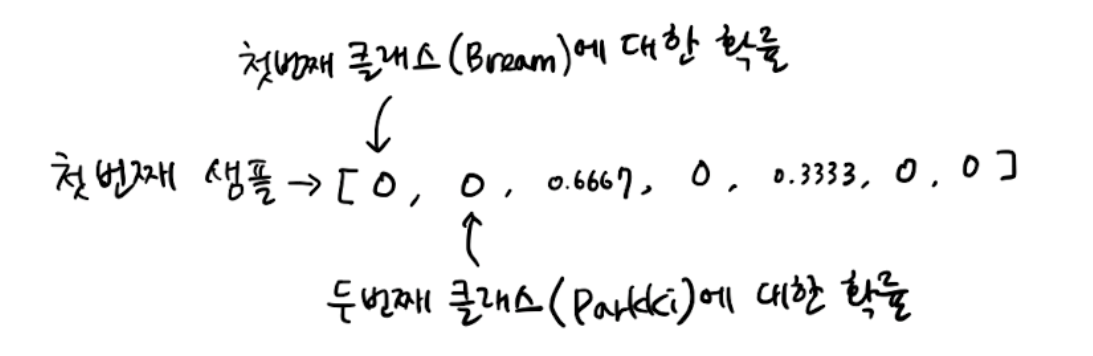 첫번째 클래스(Bream)에 대한 확률
첫번째 샘플 → [0, 0, 0.6667, 0, 0.3333, 0, 0]
두번째 클래스(Parkki)에 대한 확률